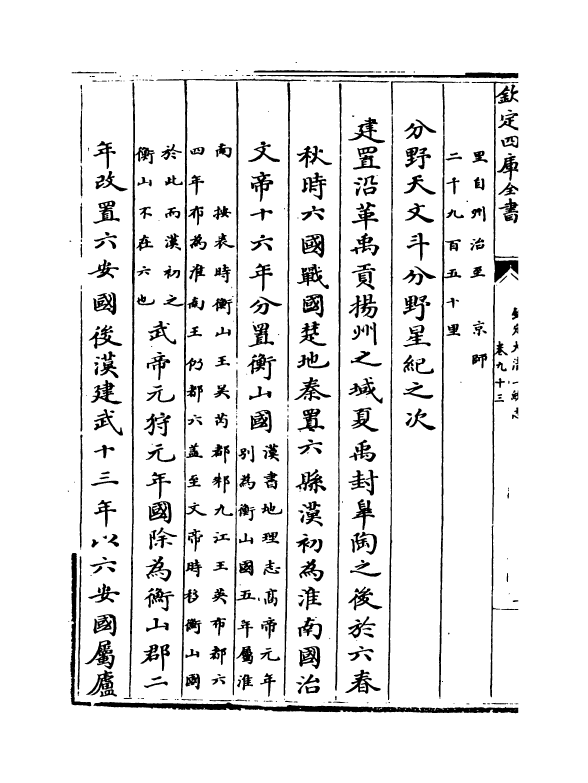 欽定四庫全書
欽定大清一統志
卷九十三
里自州治至 京師
二千九百五十里
分野天文斗分野星紀之次
建置沿革禹貢揚州之域夏禹封臯陶之後於六春
秋時六國戰國楚地秦置六縣漢初為淮南國治
文帝十六年分置衡山國
漢書地理志髙帝元年
别為衡山國五年屬淮
南 按表時衡山王吴芮都邾九江王英布都六
四年布為淮南王仍都六蓋至文帝時移衡山國
於此而漢初之
衡山不在六也
武帝元狩元年國除為衡山郡二
年改置六安國後漢建武十三年以六安國屬廬